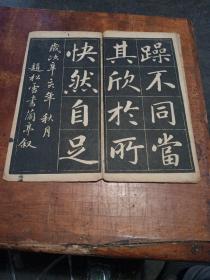 躁不同當
其欣於所
快然自足
歲次辛亥年秋月
趙松雪書蘭亭叙